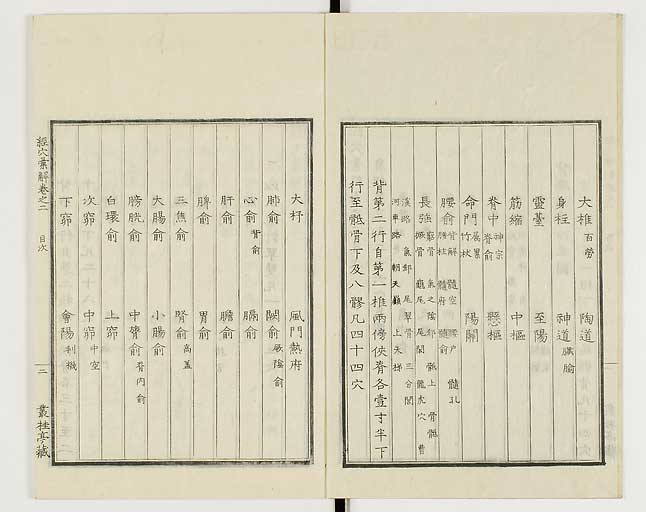 大椎 百勞 陶道
身柱 神道 臟腧
靈臺 至陽
筋縮 中樞
脊中 神宗 脊俞 懸樞
命門 屬累 竹杖 陽關
腰俞 背解 髓空 腰户 髓孔 腰柱 髓府 髓俞
長強 窮骨 氣之陰郄 骶上 骨骶 橛骨 龜尾 尾閭 龍虎穴 曹
溪路 氣郄 尾翠骨 三分閭 河車路 朝天巓 上天梯
背第二行自第一椎兩傍俠脊各壹寸半下
行至骶骨下及八髎凡四十四穴
大杼 風門熱府
肺俞 闕俞 厥陰俞
心俞 背俞 膈俞
肝俞 膽俞
脾俞 胃俞
三焦俞 腎俞 高蓋
大腸俞 小腸俞
膀胱俞 中膂俞 脊內俞
白環俞 上窌
次窌 中窌 中空
下窌 會陽 利機
經穴彙解卷之二 目次 三 叢桂亭藏